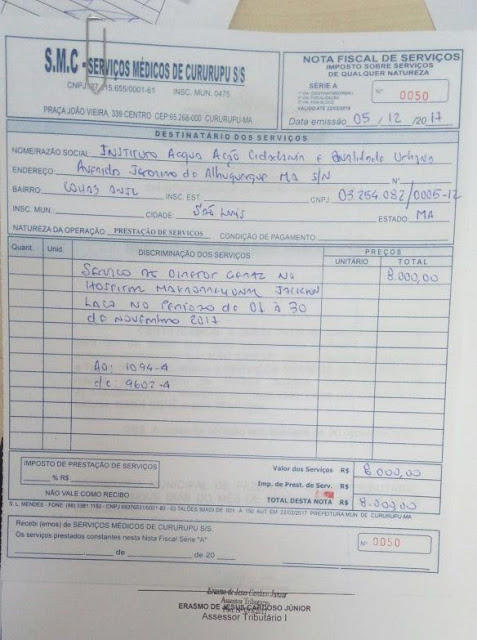 S.M.C - SERVIÇOS MÉDICOS DE CURURUPU S/S
INSC. MUN. 0475
PRAÇA JOÃO VIEIRA, 339 CENTRO CEP:65.268-000 CURURUPU-MA
NOTA FISCAL DE SERVIÇOS
IMPOSTO SOBRE SERVIÇOS
DE QUALQUER NATUREZA
SÉRIE A
Nº 0050
Data emissão 05 / 12 / 2017
DESTINATÁRIO DOS SERVIÇOS
NOME/RAZÃO SOCIAL Instituto Acqua Ação Cidadania e Qualidade Urbana
ENDEREÇO: Avenida Jeronimo de Albuquerque MA S/N Nº
BAIRRO: INSC. EST. CNPJ 03.254.082/0005-12
INSC. MUN.: CIDADE: São Luis ESTADO MA
NATUREZA DA OPERAÇÃO PRESTAÇÃO DE SERVIÇOS CONDIÇÃO DE PAGAMENTO
Quant. Unid. DISCRIMINAÇÃO DOS SERVIÇOS PREÇOS
UNITÁRIO TOTAL
Serviço de Diretor Geral no 8.000,00
Hospital Macrorregional Jackson
Laco no Período de 01 à 30
de Novembro 2017
AG: 1094-4
c/c: 9602-4
IMPOSTO DE PRESTAÇÃO DE SERVIÇOS
% R$
NÃO VALE COMO RECIBO
Valor dos Serviços R$ 8.000,00
Imp. de Prest. de Serv. R$
TOTAL DESTA NOTA R$ 8.000,00
Recebi (emos) de SERVIÇOS MÉDICOS DE CURURUPU S/S.
Os serviços prestados constantes nesta Nota Fiscal Série "A"
de de 20
Nº 0050
Erasmo de Jesus Cardoso Júnior
Assessor Tributário
ERASMO DE JESUS CARDOSO JÚNIOR
Assessor Tributário I